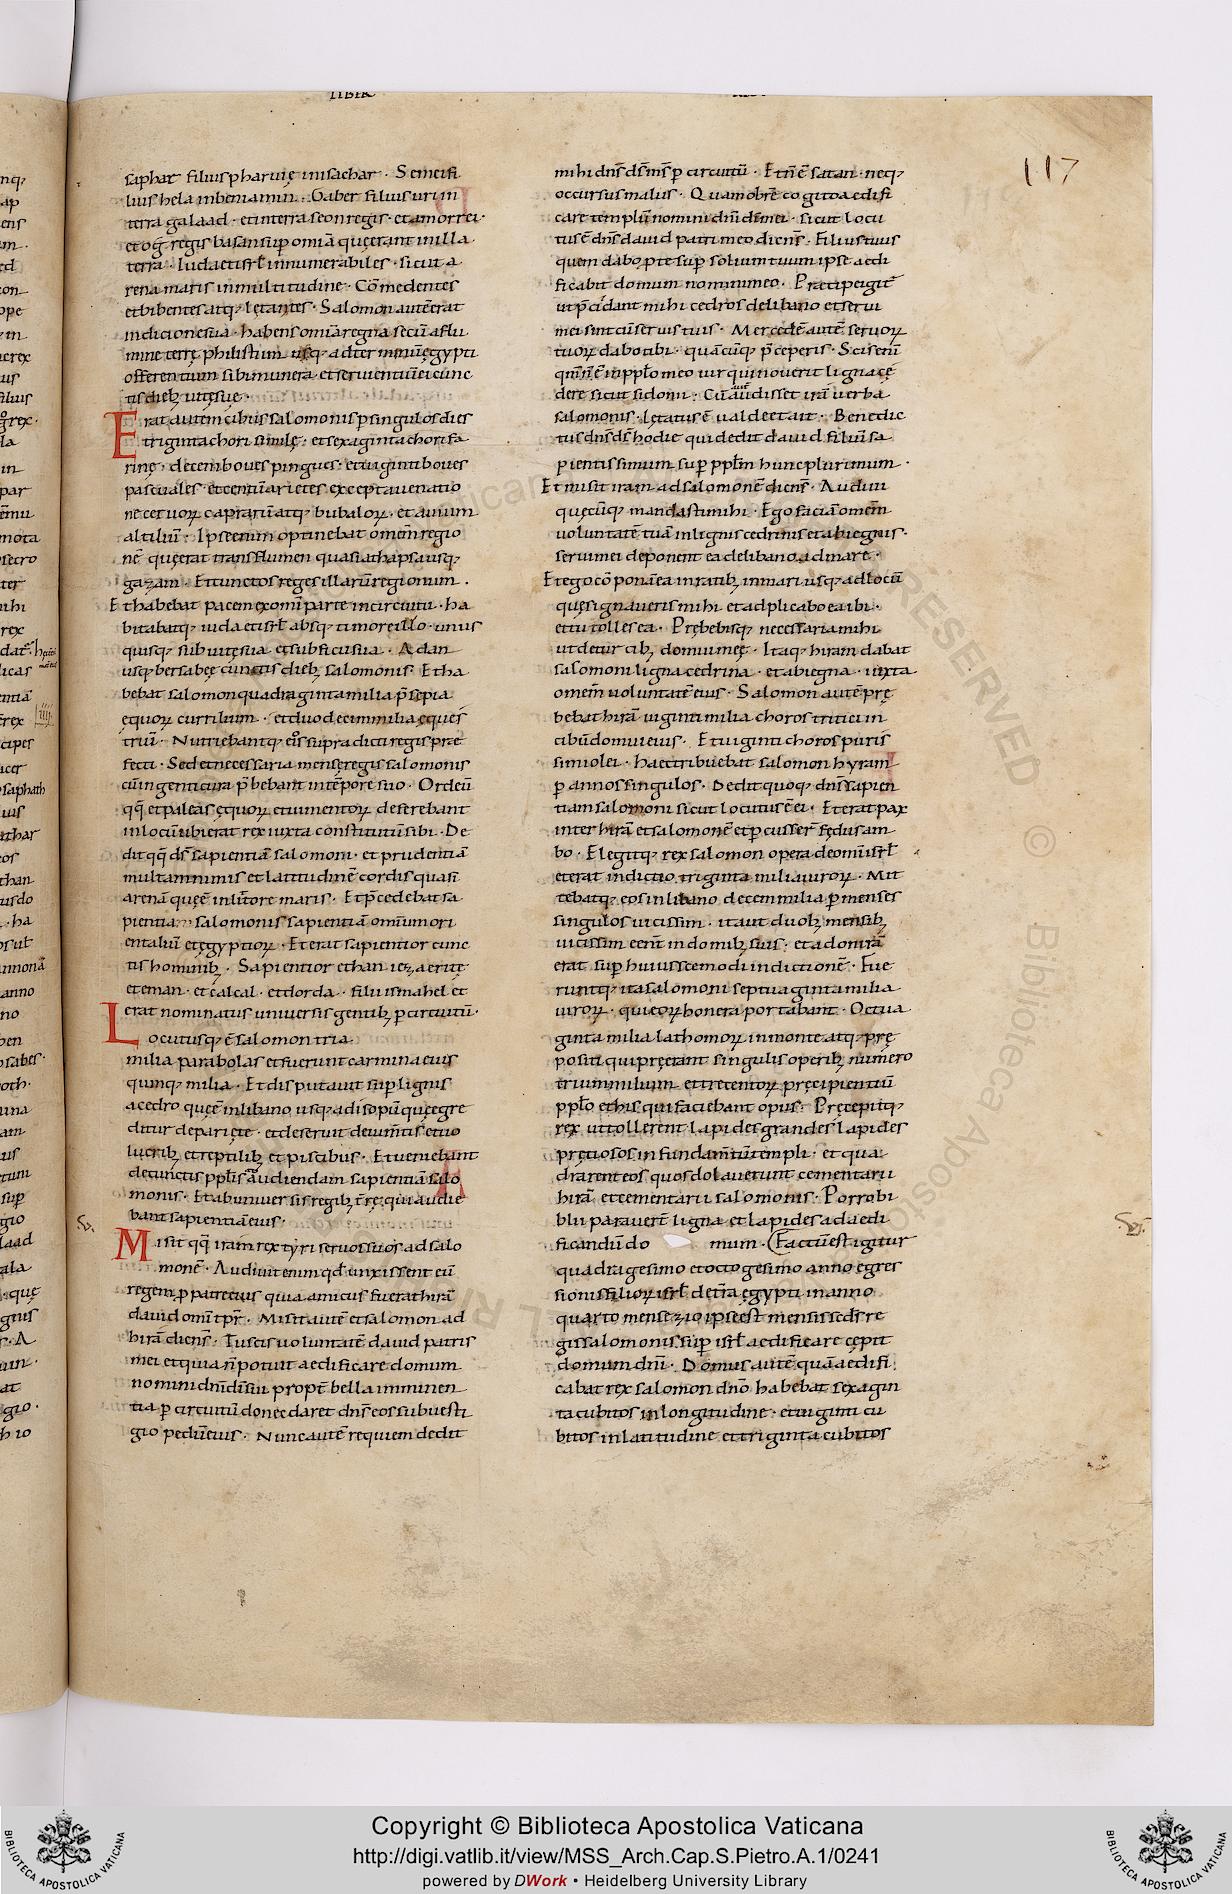 117
saphat filius pharuię inisachar · Semeifi
lius hela inbeniamin · Gaber filius uri in
terra galaad · et interra seon regis · et amorrei ·
et og̅ regis basan sup̅ omīa quęerant inilla
terra · Iuda et isrł innumerabiles · sicut a
rena maris inmultitudine · Cōmedentes
et bibentes atq; lętantes · Salomon autē erat
indicione sua · habens omīa regna secū aflu
mine terrę philistiim usq; ad ter minū ęgypti
offerentium sibi munera · et seruientiū ei cunc
tis dieb; uitęsuę ·
Erat autem cibus salomonis p singulos dies
triginta chori similę · et sexaginta chori fa
rinę · decem boues pingues · et uiginti boues
pascuales · et centū arietes excepta uenatio
ne ceruoꝝ caprarū atq; bubaloꝝ · et auium
altiliū · Ipse enim optinebat omēm regio
nē quęerat trans flumen quasi athapsa usq;
gazam · Et cunctos reges illarū regionum ·
Et habebat pacem exomī parte incircuitu · ha
bitabatq; iuda et isrł absq; timore illo · unus
quisq; sub uitęsua et sub ficu sua · Adan
usq; bersabeę cunctis dieb; salomonis · Et ha
bebat salomon quadraginta milia p̄sepia
ęquoꝝ currilium · et duodecim milia ęques
triū · Nutriebantq; eos supra dicti regis pre
fecti · Sed et necessaria mensę regis salomonis
cū ingenti cura p̄bebant intēpore suo · Ordeū
qq̄ et paleas ęquoꝝ et iumentoꝝ deferebant
inlocū ubi erat rex iuxta constitutū sibi · De
dit qq̄ ds̄ sapientiā salomoni · et prudentiā
multam nimis et latitudinē cordis quasi
arenā quęē inlitore maris · Et p̄cedebat sa
pientia salomonis sapientiā omiū mori
entaliū et ęgyptioꝝ · Et erat sapientior cunc
tis hominib; · Sapientior ethan iezaeritę
et eman · et calcal · et dorda · filii ismahel et
erat nominatus uniuersis gentib; p circuitū ·
Locutusq; ē salomon tria
milia parabolas et fuerunt carmina eius
quinq; milia · Et disputauit sup̅ lignis
acedro quęē inlibano usq; ad isopū quę egre
ditur depariete · et deseruit deiumtis et uo
lucrib; et reptilib; et piscibus · Et ueniebant
decunctis pplis audiendam sapientiā salo
monis · Et ab uniuersis regib; t̄rę qui audie
bant sapientiā eius ·
Misit qq̄ iram rex tyri seruos suos ad salo
monē · Audiuit enim qd̄ unxissent eū
regem p patre eius quia amicus fuerat hirā
dauid omī tpr̄ · Misit autē et salomon ad
hirā dicens̄ · Tu scis uoluntatē dauid patris
mei et quia n̄ potuit aedificare domum
nomini dnī dī sui propt̄ bella imminen
tia p circuitū donec daret dns̄ eos sub uesti
gio pedū eius · Nunc autē requiem dedit
mihi dns̄ ds̄ ms̄ p circuitū · Et n̄ ē satan · neq;
occursus malus · Quamobrē cogito aedifi
care templū nomini dnī dī mei · sicut locu
tus ē dns̄ dauid patri meo dicens̄ · Filius tuus
quem dabo p te sup̅ solium tuum ipse aedi
ficabit domum nomini meo · Pręcipe igit̄
ut p̄cidant mihi cedros delibano et serui
mei sint cū seruis tuis · Mercedē autē seruoꝝ
tuoꝝ dabo tibi · quācūq; p̄ceperis · Scis enī
qm̄ n̄ ē inpplō meo uir qui nouerit ligna cę
dere sicut sidoni · Cū audisset irā uerba
salomonis · lętatus ē ualde et ait · Benedic
tus dns̄ ds̄ hodie qui dedit dauid filiū sa
pientissimum sup̅ pplm̄ hunc plurimum ·
Et misit iram ad salomonē dicens̄ · Audiui
quęcūq; mandasti mihi · Ego faciā omēm
uoluntatē tuā inlignis cedrinis et abiegnis ·
serui mei deponent ea delibano ad mare ·
Et ego cōponā ea inratib; inmari usq; ad locū
quę signaueris mihi et adplicabo ea ibi ·
et tu tolles ea · Prębebisq; necessaria mihi
ut detur cib; domui meę · Itaq; hiram dabat
salomoni ligna cedrina · et abiegna · iuxta
omēm uoluntatē eius · Salomon autē prę
bebat hirā uiginti milia choros tritici in
cibū domui eius · Et uiginti choros puris
simi olei · haec tribuebat salomon hyram
p annos singulos · Dedit quoq; dns̄ sapien
tiam salomoni sicut locutus ē ei · Et erat pax
inter hirā et salomonē et p̄cusser̄ fędus am
bo · Elegitq; rex salomon opera deomī isrł
et erat indictio triginta milia uiroꝝ · Mit
tebatq; eos inlibano decem milia p menses
singulos uicissim · ita ut duob; mensib;
uicissim eēnt indomib; suis · et adonirā
erat sup̅ huiuscemodi indictionē · Fue
runtq; ita salomoni septuaginta milia
uiroꝝ · qui eoꝝ honera portabant · Octua
ginta milia lathomoꝝ inmonte atq; prę
positi qui pręerant singulis operib; numero
trium milium et trecentoꝝ pręcipientiū
pplō et his qui faciebant opus · Pręcepitq;
rex ut tollerent lapides grandes lapides
pretiosos in fundamtū templi · et qua
drarent eos quos dolauerunt cementarii
hirā et cementarii salomonis · Porro bi
blii parauer̄t ligna et lapides ad aedi
ficandū do mum · Factū est igitur
quadragesimo et octogesimo anno egres
sionis filioꝝ isrł detr̄a ęgypti inanno
quarto mense zio ipse est mensis scds̄ re
gis salomonis sup̅ isrł aedificare cępit
domum dnī · Domus autē quā aedifi
cabat rex salomon dnō habebat sexagin
ta cubitos inlongitudine · et uiginti cu
bitos inlatitudine et triginta cubitos
Copyright © Biblioteca Apostolica Vaticana
http://digi.vatlib.it/view/MSS_Arch.Cap.S.Pietro.A.1/0241
powered by DWork • Heidelberg University Library
BIBLIOTECA APOSTOLICA VATICANA
BIBLIOTECA APOSTOLICA VATICANA